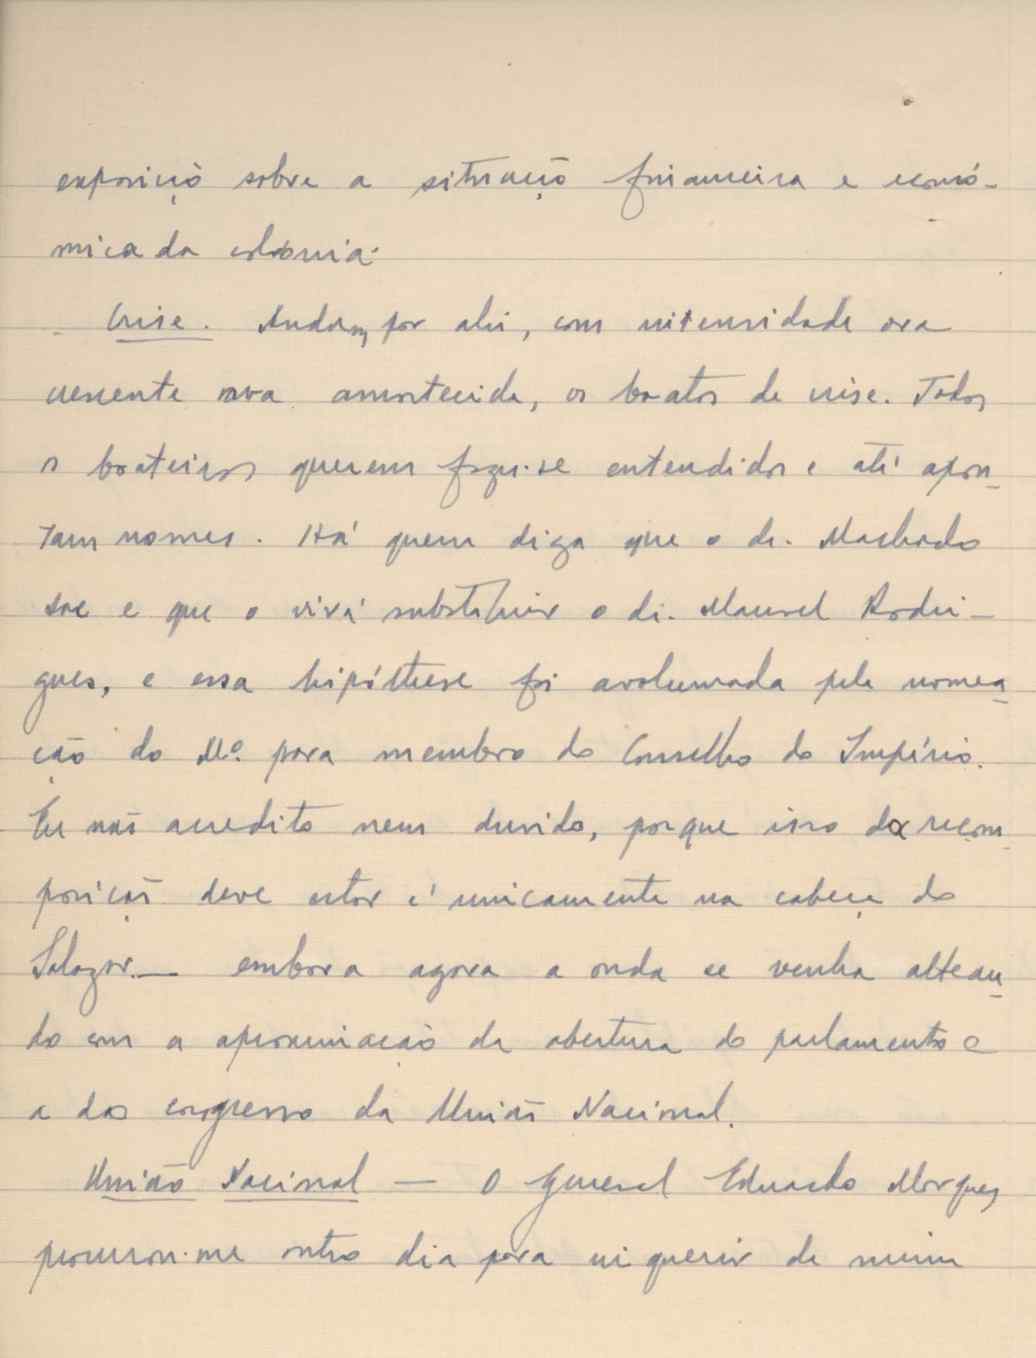 exposição sobre a situação financeira e econó-
mica da colónia.
Crise. Andam, por ahi, com intensidade ora
crescente ora amortecida, os boatos de crise. Todos
os boateiros querem fazer-se entendidos e até apon-
tam nomes. Há quem diga que o dr. Machado
sae e que o virá substituir o dr. Manuel Rodri-
gues, e essa hipóthese foi avolumada pela nomea-
ção do Mo. para membro do Conselho do Império.
Eu não acredito nem duvido, porque isso da recom-
posição deve estar é unicamente na cabeça do
Salazar. — embora agora a onda se venha altean-
do com a aproximação da abertura do parlamento e
a do congresso da União Nacional.
União Nacional — O General Eduardo Marques
procurou-me outro dia para inquerir de mim